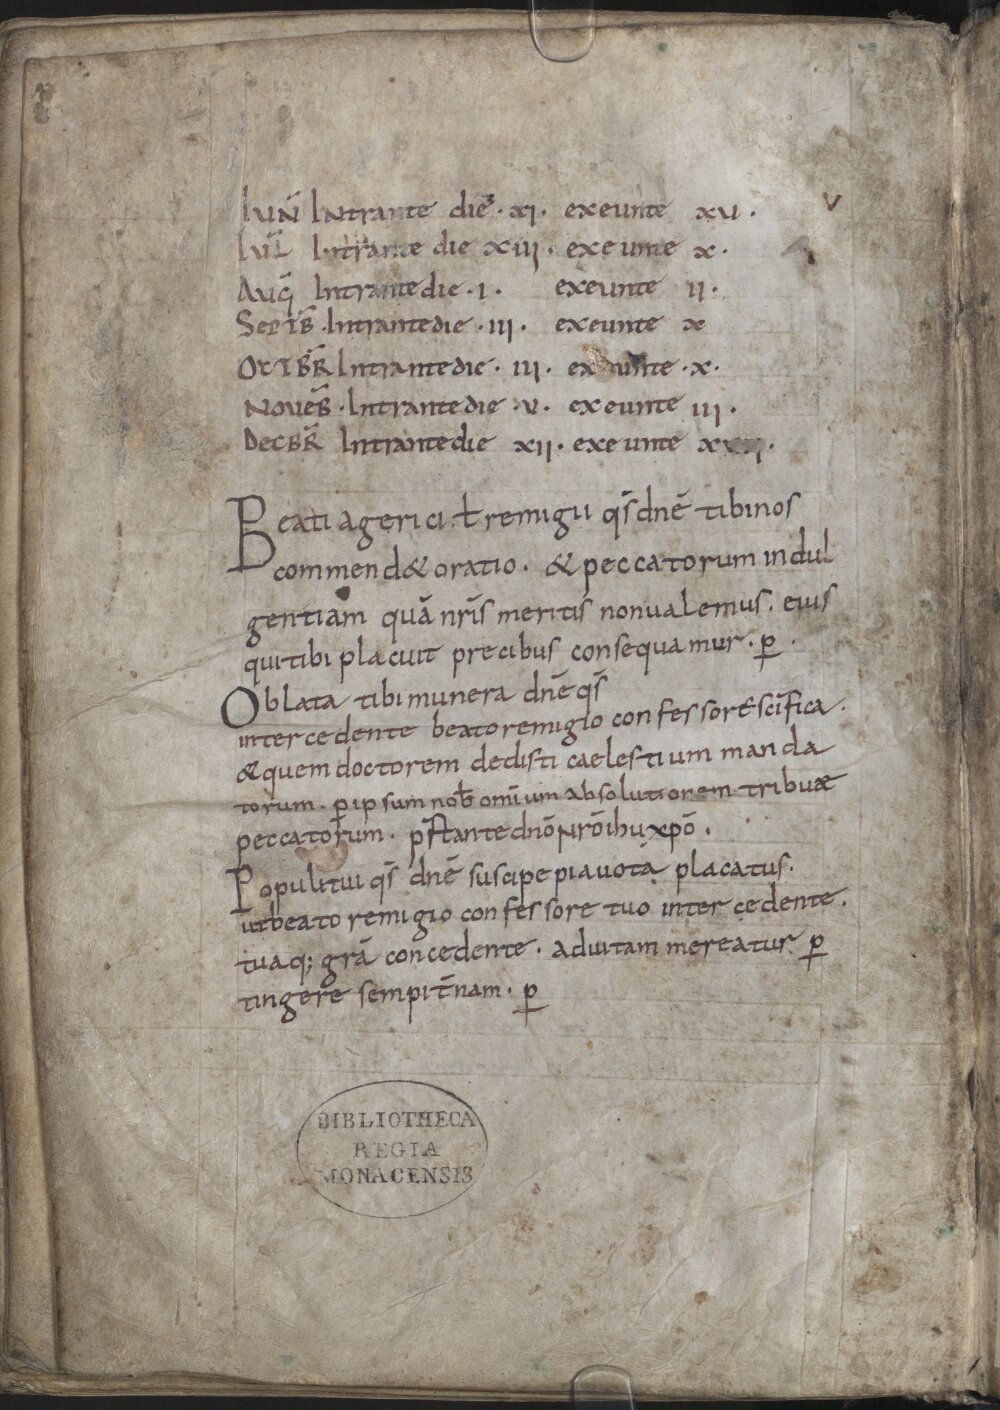 IUN̄ INtrante die · xi · exeunte xv ·
IUL̄ Intrante die xiij · exeunte x ·
AuḠ Intrante die · i · exeunte ii ·
SepTB̄ · Intrante die · iii · exeunte x
OcTBR̄ Intrante die · iii · exeunte · x ·
NoveB̄ · Intrante die · v · exeunte iij ·
DecBR̄ Intrante die xii · exeunte
Beati agerici ł remigii qs̄ dnē tibi nos
commend& oratio · & peccatorum indul
gentiam quā nr̄is meritis non ualemus · eius
qui tibi placuit precibus consequamur · ꝑ ·
Oblata tibi munera dnē qs̄
intercedente beato remigio confessore sc̄ifica ·
& quem doctorem dedisti caelestium manda
torum · ꝑ ipsum nob̄ omīum absolutionem tribuæ
peccatorum · p̄stante dnō Nrō ihu xpō ·
Populi tui qs̄ dnē suscipe pia uota placatus ·
ut beato remigio confessore tuo intercedente ·
tuaq; grā concedente · ad uitam mereatur ꝑ
tingere sempit̄nam · ꝑ
BIBLIOTHECA
REGIA
MONACENSIS